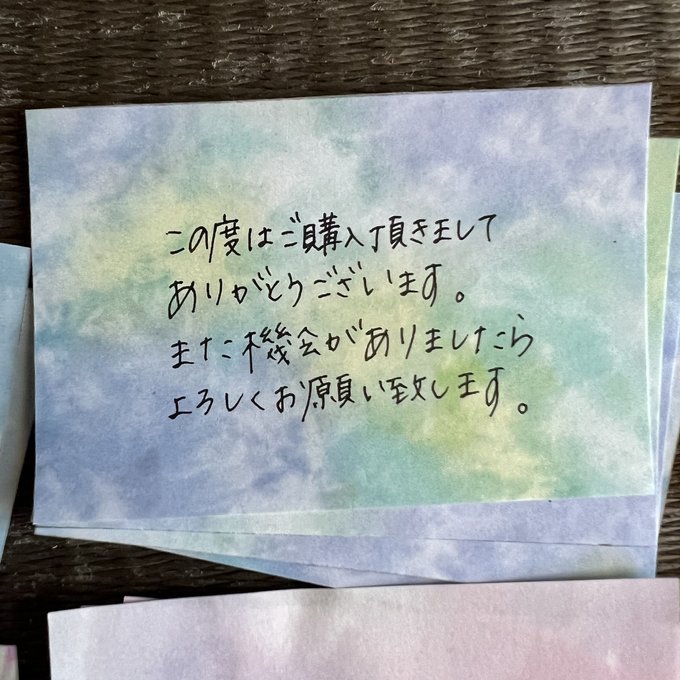 この度はご購入頂きまして
ありがとうございます。
また機会がありましたら
よろしくお願い致します。